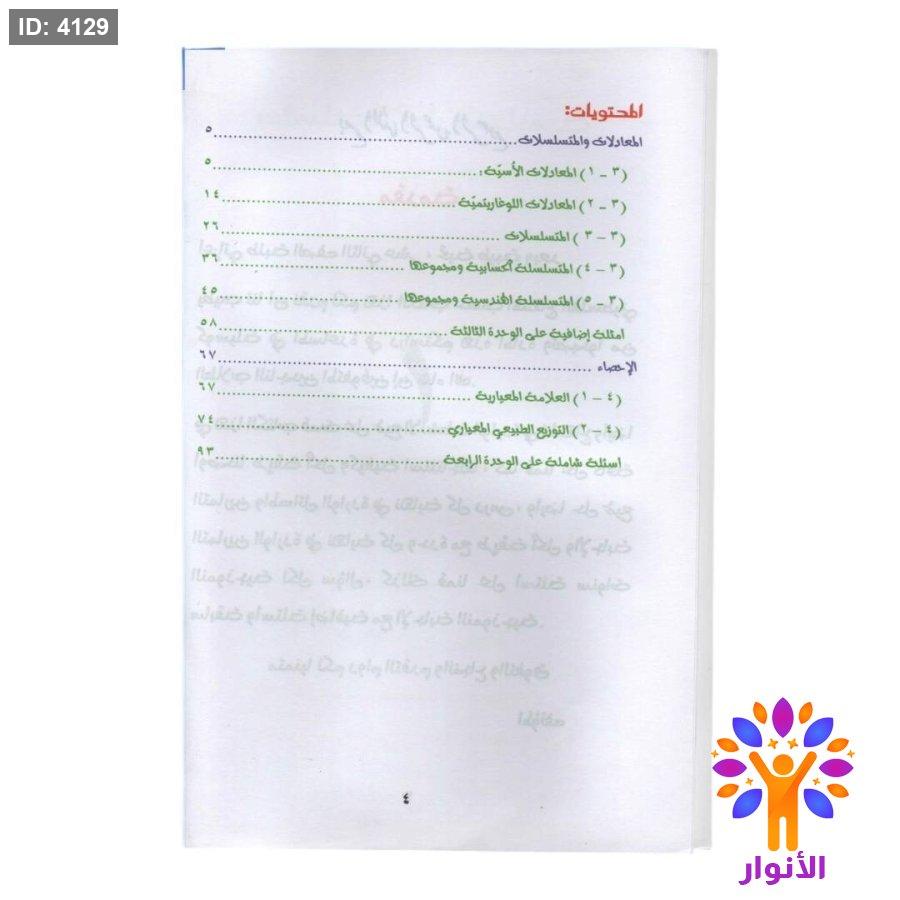 ID: 4129
المحتويات:
المعادلات والمتسلسلات..........٥
(٣ - ١) المعادلات الأسيّة:..........٥
(٣ - ٢) المعادلات اللوغاريتميّة..........١٤
(٣ - ٣) المتسلسلات..........٢٦
(٣ - ٤) المتسلسلة الحسابية ومجموعها..........٣٦
(٣ - ٥) المتسلسلة الهندسية ومجموعها..........٤٥
امثلة إضافية على الوحدة الثالثة..........٥٨
الإحصاء..........٦٧
(٤ - ١) العلامة المعيارية..........٦٧
(٤ - ٢) التوزيع الطبيعي المعياري..........٧٤
اسئلة شاملة على الوحدة الرابعة..........٩٣
٤
الأنوار